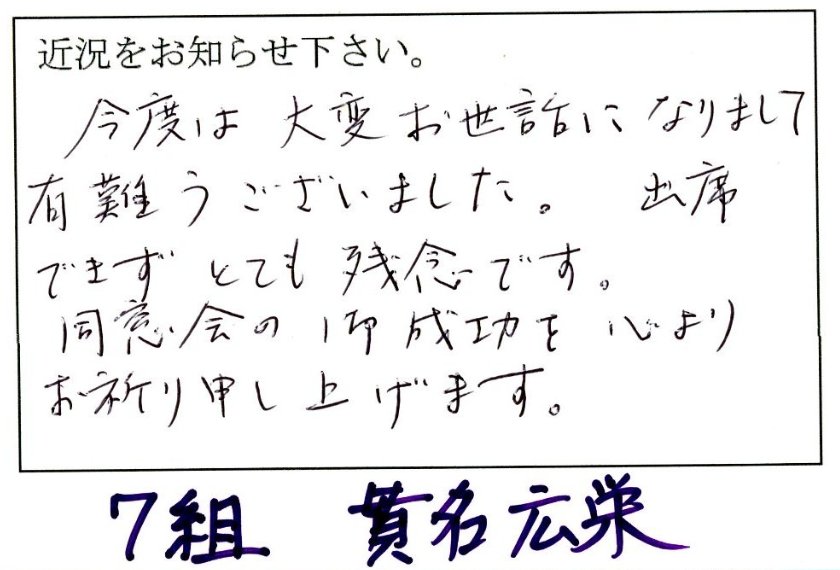 近況をお知らせ下さい。
今度は大変お世話になりまして
有難うございました。 出席
できずとても残念です。
同窓会の御成功を心より
お祈り申し上げます。
7組 貫名広栄